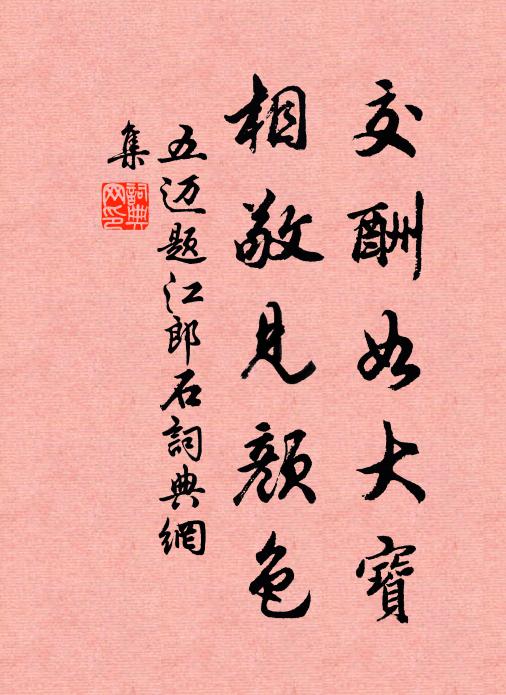 交酬如大寶
相敬見顏色
五迈题江郎石詞典網
集
詞典
网印